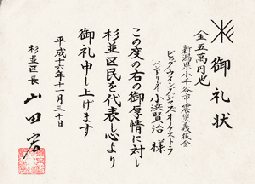 御礼状
金五萬円也
新潟県小千谷市 震災義援金
ビッグウィングジャズオーケストラ
バンドリーダー 小浜賢治 様
この度の右の御厚情に対し
杉並区民を代表し心より
御礼申し上げます
平成十六年十一月三十日
杉並区長 山田宏